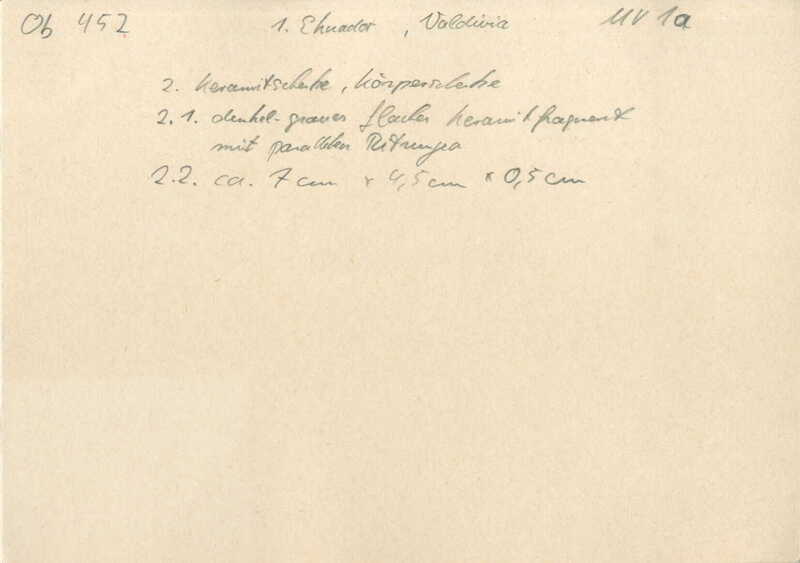 Ob 452 1. Ekuador, Valdivia MV 1a
2. Keramikscherbe, Körperscherbe
2.1. dunkel-graues flaches Keramikfragment
mit parallelen Ritzungen
2.2. ca. 7cm x 4,5cm x 0,5cm